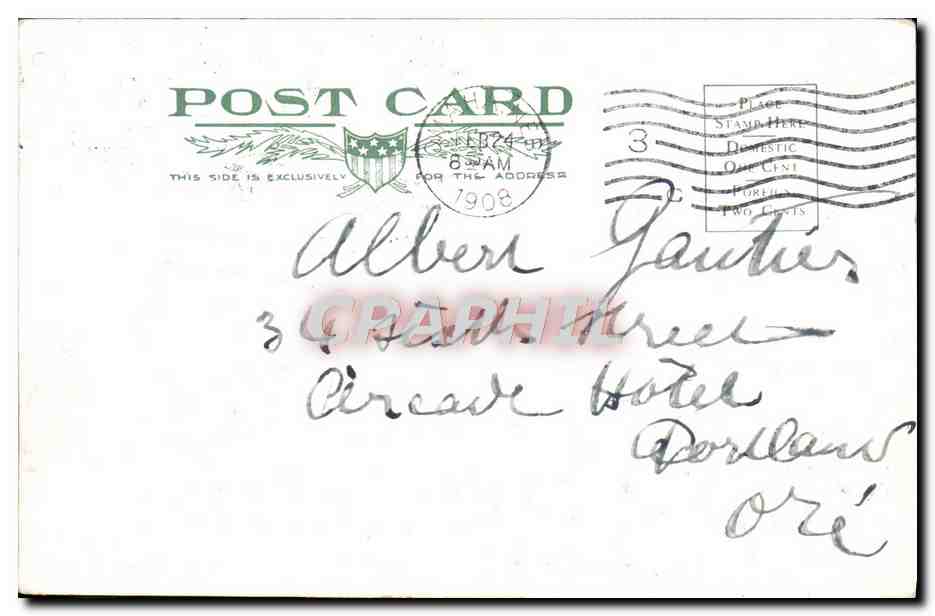 POST CARD
THIS SIDE IS EXCLUSIVELY FOR THE ADDRESS
FEB 24
8 AM
1908
3
C
PLACE
STAMP HERE
DOMESTIC
ONE CENT
FOREIGN
TWO CENTS
Albert Gautier
34 sixth street
Arcade Hôtel
Portland
Oré
CRAPHIL